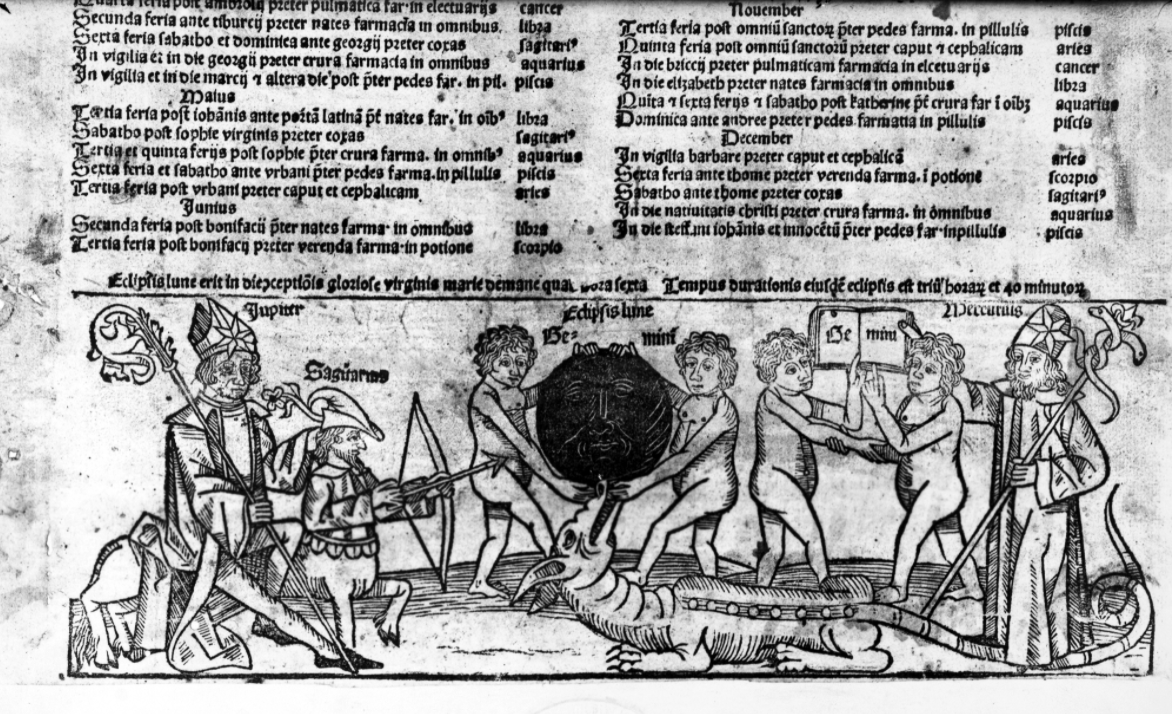 Quarta feria post ambrosij preter pulmatica far· in electuarijs cancer
Secunda feria ante tiburcij preter nates farmacia in omnibus. libra
Sexta feria sabatho et dominica ante georgij preter coxas sagitariꝰ
In vigilia et in die georgij preter crura farmacia in omnibus aquarius
In vigilia et in die marcij ⁊ altera die post p̄ter pedes far. in pil. piscis
Maius
Tertia feria post iohānis ante portā latinā p̄t nates far. in oībꝰ libra
Sabatho post sophie virginis preter coxas sagitariꝰ
Tertia et quinta ferijs post sophie p̄ter crura farma. in omnibꝰ aquarius
Sexta feria et sabatho ante vrbani p̄ter pedes farma. in pillulis piscis
Tertia feria post vrbani preter caput et cephalicam aries
Junius
Secunda feria post bonifacij p̄ter nates farma· in omnibus libra
Tertia feria post bonifacij preter verenda farma· in potione scorpio
Nouember
Tertia feria post omniū sanctoꝝ p̄ter pedes farma. in pillulis piscis
Quinta feria post omniū sanctorū preter caput ⁊ cephalicam aries
In die briccij preter pulmaticam farmacia in elcetuarijs cancer
In die elizabeth preter nates farmacia in omnibus libra
Quīta ⁊ sexta ferijs ⁊ sabatho post katherine p̄t crura far ī oībꝫ aquarius
Dominica ante andree preter pedes farmatia in pillulis piscis
December
In vigilia barbare preter caput et cephalicā aries
Sexta feria ante thome preter verenda farma. ī potione scorpio
Sabatho ante thome preter coxas sagitariꝰ
In die natiuitatis christi preter crura farma. in omnibus aquarius
In die steff. iohānis et innocētū p̄ter pedes far· in pillulis piscis
Eclipsis lune erit in die gloriose virginis marie de mane hora sexta Tempus durationis eiusdē eclipsis est triū horaꝝ et 40 minutoꝝ
Jupiter
Sagitarius
Eclipsis lune
Ge⸗ mini
Ge mini
Mercurius